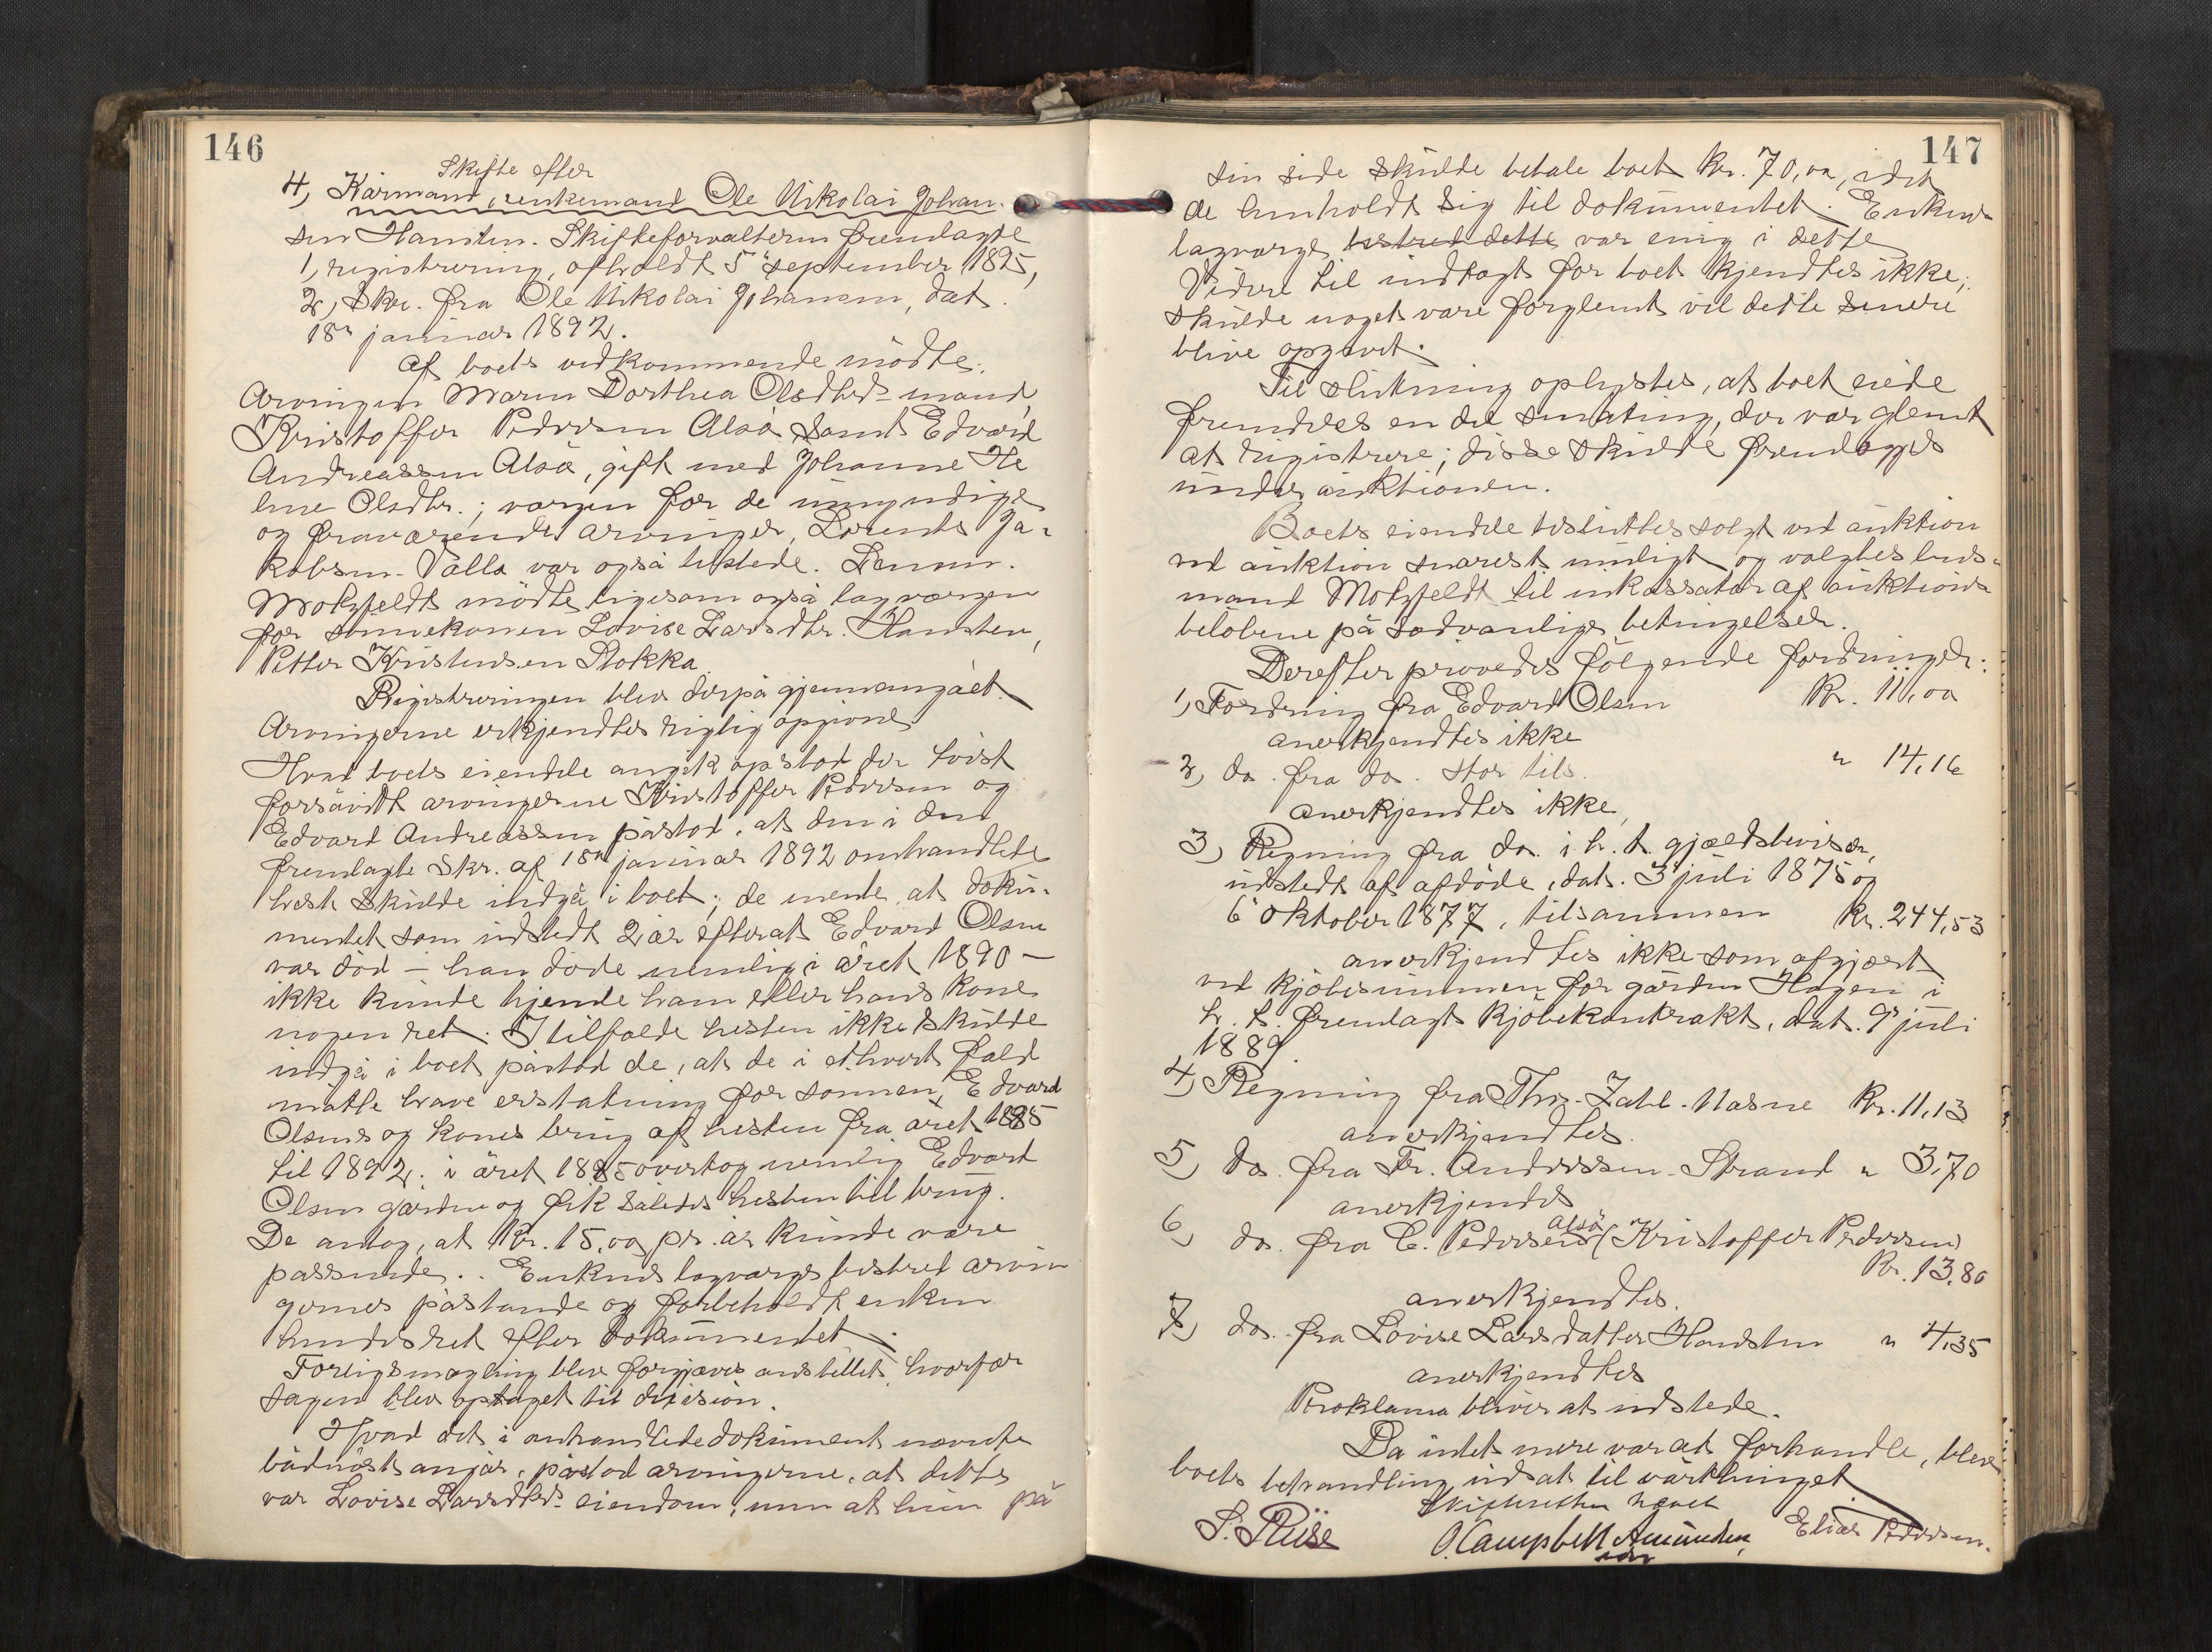 146
Skifte efter
4, Kårmand, enkemand Ole Nikolai Johan-
sen Hansten. Skifteforvalteren fremlagde
1, registrering, afholdt 5' september 1895,
2, Skr. fra Ole Nikolai Johansen, dat.
18' januar 1892.
Af boets vedkommende mødte:
Arvingen Maren Dorthea Olsdtrs mand,
Kristoffer Pedersen Alsö samt Edvard
Andreassen Alsö, gift med Johanne He
lene Olsdtr.; vergen for de umyndige
og fraværende arvinger, Lorents Ja-
kobsen Valla var også tilstede. Lensm.
Motzfeldt mødte ligesom også lagvergen
for sønnekonen Lovise Larsdtr. Hansten,
Petter Kristensen Stokka.
Registreringen blev derpå gjennemgået.
Arvingerne erkjendtes rigtig opgivne.
Hvad boets eiendele angik opstod der tvist
forsåvidt arvingerne Kristoffer Pedersen og
Edvard Andreassen påstod, at den i den
fremlagte Skr. af 18' januar 1892 omhandlede
hest skulde indgå i boet; de mente, at doku-
mentet som udstedt 2 år efterat Edvard Olsen
var död – han döde nemlig i året 1890 –
ikke kunde hjemle ham eller hans kone
nogen ret. I tilfælde hesten ikke skulde
indgå i boet påstod de, at de i ethvert fald
måtte have erstatning for sønnen, Edvard
Olsens og kones brug af hesten fra året 1885
til 1892; i året 1885 overtog nemlig Edvard
Olsen gården og fik således hesten til brug.
De antog, at Kr. 15,00 pr. år kunde være
passende. Enkens lagverge bestred arvin
gernes påstande og forbeholdt enken
hendes ret efter dokumentet.
Forligsmægling blev forgjæves anstillet, hvorfor
sagen blev optaget til decision.
Hvad det i omhandlede dokument nævnte
bådnøst angår, påstod arvingerne, at dette
var Lovise Larsdtrs eiendom, men at hun på
147
sin side skulde betale boet Kr. 70,00, idet
de henholdt sig til dokumentet. Enkens
lagverge bestred dette var enig i dette
Videre til indtægt for boet kjendtes ikke;
skulde noget være forglemt vil dette senere
blive opgivet.
Til slutning oplystes, at boet eiede
fremdeles en del småting, der var glemt
at registrere; disse skulde fremlægges
under auktionen.
Boets eiendele besluttes solgt ved auktion
ved auktion snarest muligt og valgtes lens-
mand Motzfeldt til inkassator af auktions
beløbene på sædvanlige betingelser.
Derefter prövedes fölgende fordringer:
1, Fordring fra Edvard Olsen Kr. 11,00
anerkjendtes ikke
2, do. fra do. stor tils. " 14,16
anerkjendtes ikke,
3, Regning fra do. i h. t. gjældsbeviser,
udstedt af afdøde, dat. 3' juli 1875 og
6' oktober 1877, tilsammen Kr. 244,53
anerkjendtes ikke som afgjort
ved kjöbesummen for gården Hagen i
h. t. fremlagt kjöbekontrakt, dat. 9' juli
1889.
4, Regning fra Thr. Zahl. Næsne Kr. 11,13
anerkjendtes.
5, do. fra Fr. Andersen Strand " 3,70
anerkjendes
6, do. fra C. Pedersen Alsö (Kristoffer Pedersen)
Kr. 13,80
anerkjendtes.
7, do. fra Lovise Larsdatter Handsten " 4,35
anerkjendtes
Proklama bliver at udstede.
Da intet mere var at forhandle, blev
boets behandling udsat til værtinget.
Skifteretten hævet
S. Riise O. Campbell Amundsen Elias Pedersen.